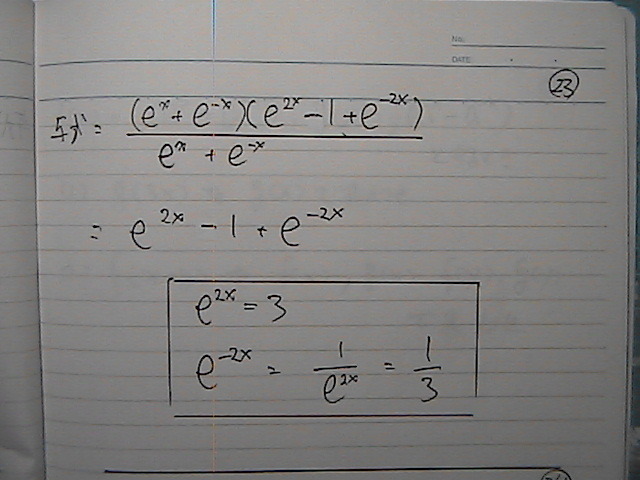 No.
DATE
23
原式 = (e^x + e^-x)(e^2x - 1 + e^-2x) / (e^x + e^-x)
= e^2x - 1 + e^-2x
e^2x = 3
e^-2x = 1/e^2x = 1/3